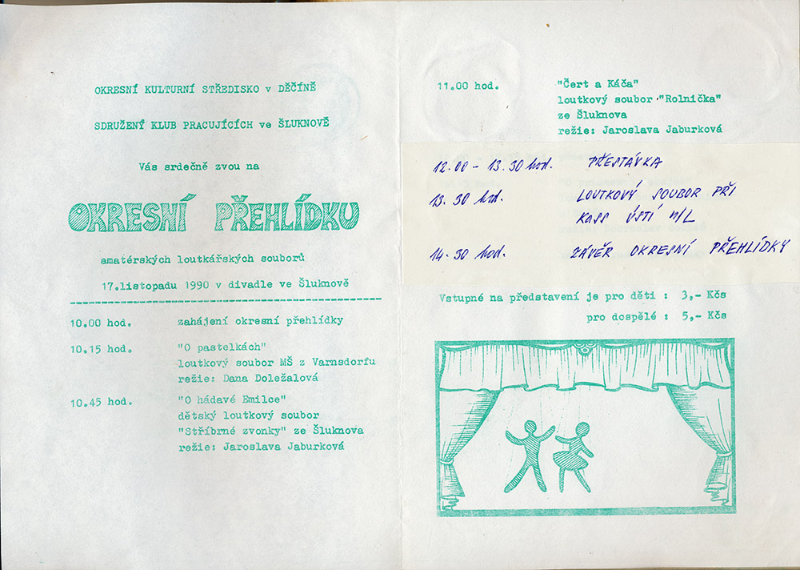 OKRESNÍ KULTURNÍ STŘEDISKO v DĚČÍNĚ
SDRUŽENÝ KLUB PRACUJÍCÍCH ve ŠLUKNOVĚ
Vás srdečně zvou na
OKRESNÍ PŘEHLÍDKU
amatérských loutkářských souborů
17.listopadu 1990 v divadle ve Šluknově
10.00 hod. zahájení okresní přehlídky
10.15 hod. "O pastelkách"
loutkový soubor MŠ z Varnsdorfu
režie: Dana Doležalová
10.45 hod. "O hádavé Emilce"
dětský loutkový soubor
"Stříbrné zvonky" ze Šluknova
režie: Jaroslava Jaburková
11.00 hod. "Čert a Káča"
loutkový soubor "Rolnička"
ze Šluknova
režie: Jaroslava Jaburková
12.00 - 13.30 hod. PŘESTÁVKA
13.30 hod. LOUTKOVÝ SOUBOR PŘI
KASS ÚSTÍ n/L
14.30 hod. ZÁVĚR OKRESNÍ PŘEHLÍDKY
Vstupné na představení je pro děti : 3,- Kčs
pro dospělé : 5,- Kčs